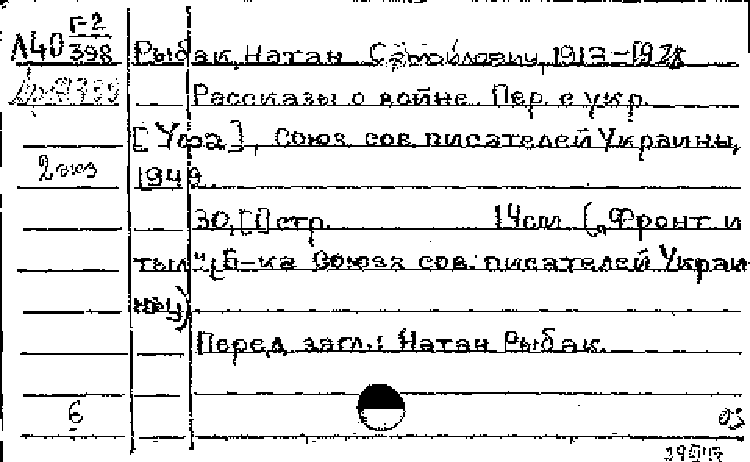 Л40 Г-2
398
Рыбак, Натан Самойлович, 1913-1978
Рассказы о войне. Пер. с укр.
[Уфа], Союз сов. писателей Украины,
2 экз
1942.
30, [1] стр. 14 см. („Фронт и
тыл". Б-ка Союза сов. писателей Украи
ны)
Перед загл.: Натан Рыбак.
6